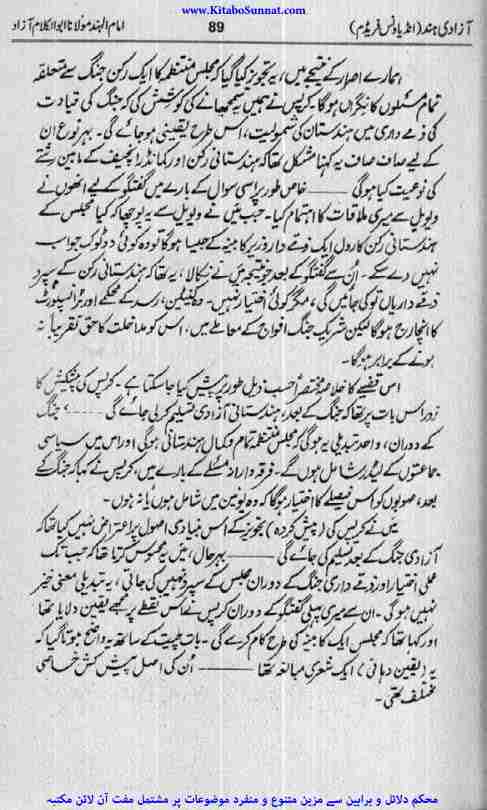 www.KitaboSunnat.com
آزادی ہند (انڈیا ونس فریڈم)
89
امام الہند مولانا ابوالکلام آزاد
ہمارے اصرار کے نتیجے میں، یہ تجویز کیا گیا کہ مجلس منتظمہ کا ایک رکن جنگ سے متعلقہ
تمام مسئلوں کا نگراں ہو گا۔ کرپس نے ہمیں یہ سمجھانے کی کوشش کی کہ جنگ کی قیادت
کی ذمے داری میں ہندستان کی شمولیت، اس طرح یقینی ہو جائے گی۔ بہر نوع ان
کے لیے صاف صاف یہ کہنا مشکل تھا کہ ہندستانی رکن اور کمانڈر انچیف کے مابین رشتے
کی نوعیت کیا ہوگی ——— خاص طور پر اسی سوال کے بارے میں گفتگو کے لیے انھوں نے
ویویل سے میری ملاقات کا اہتمام کیا۔ جب میں نے ویویل سے یہ پوچھا کہ کیا مجلس کے
ہندستانی رکن کا رول ایک ذمے دار وزیر کابینہ کے جیسا ہو گا تو وہ کوئی دو ٹوک جواب
نہیں دے سکے۔ اُن سے گفتگو کے بعد جو نتیجہ میں نے نکالا، یہ تھا کہ ہندستانی رکن کے سپرد
ذمے داریاں تو کی جائیں گی، مگر کوئی اختیار نہیں۔ وہ کینٹین، رسد کے محکمے اور ٹرانسپورٹ
کا انچارج ہو گا لیکن شریک جنگ افواج کے معاملے میں، اس کو مداخلت کا حق تقریباً نہ
ہونے کے برابر ہو گا۔
اس قضیے کا خلاصہ مختصراً حسب ذیل طور پر پیش کیا جا سکتا ہے۔ کرپس کی پیشکش کا
زور اس بات پر تھا کہ جنگ کے بعد، ہندستانی آزادی تسلیم کر لی جائے گی ——— جنگ
کے دوران، واحد تبدیلی یہ ہوگی کہ مجلس منتظمہ تمام و کمال ہندستانی ہوگی اور اس میں سیاسی
جماعتوں کے لیڈر شامل ہوں گے۔ فرقہ وارانہ مسئلے کے بارے میں، کرپس نے کہا کہ جنگ کے
بعد، صوبوں کو اس فیصلے کا اختیار ہو گا کہ وہ یونین میں شامل ہوں یا نہ ہوں۔
میں نے کرپس کی (پیش کردہ) تجویز کے اس بنیادی اصول پر اعتراض نہیں کیا تھا کہ
آزادی جنگ کے بعد تسلیم کی جائے گی ——— بہر حال، میں یہ محسوس کرتا تھا کہ جب تک
عملی اختیار اور ذمے داری جنگ کے دوران مجلس کے سپرد نہیں کی جاتی، یہ تبدیلی معنی خیز
نہیں ہوگی۔ ان سے میری پہلی گفتگو کے دوران کرپس نے اس نقطے پر مجھے یقین دلایا تھا
اور کہا تھا کہ مجلس ایک کابینہ کی طرح کام کرے گی۔ بات چیت کے ساتھ یہ واضح ہوتا گیا کہ
یہ (یقین دہانی) ایک شعری مبالغہ تھا ——— اُن کی اصل پیش کش خاصی
مختلف تھی۔
محکم دلائل و براہین سے مزین متنوع و منفرد موضوعات پر مشتمل مفت آن لائن مکتبہ